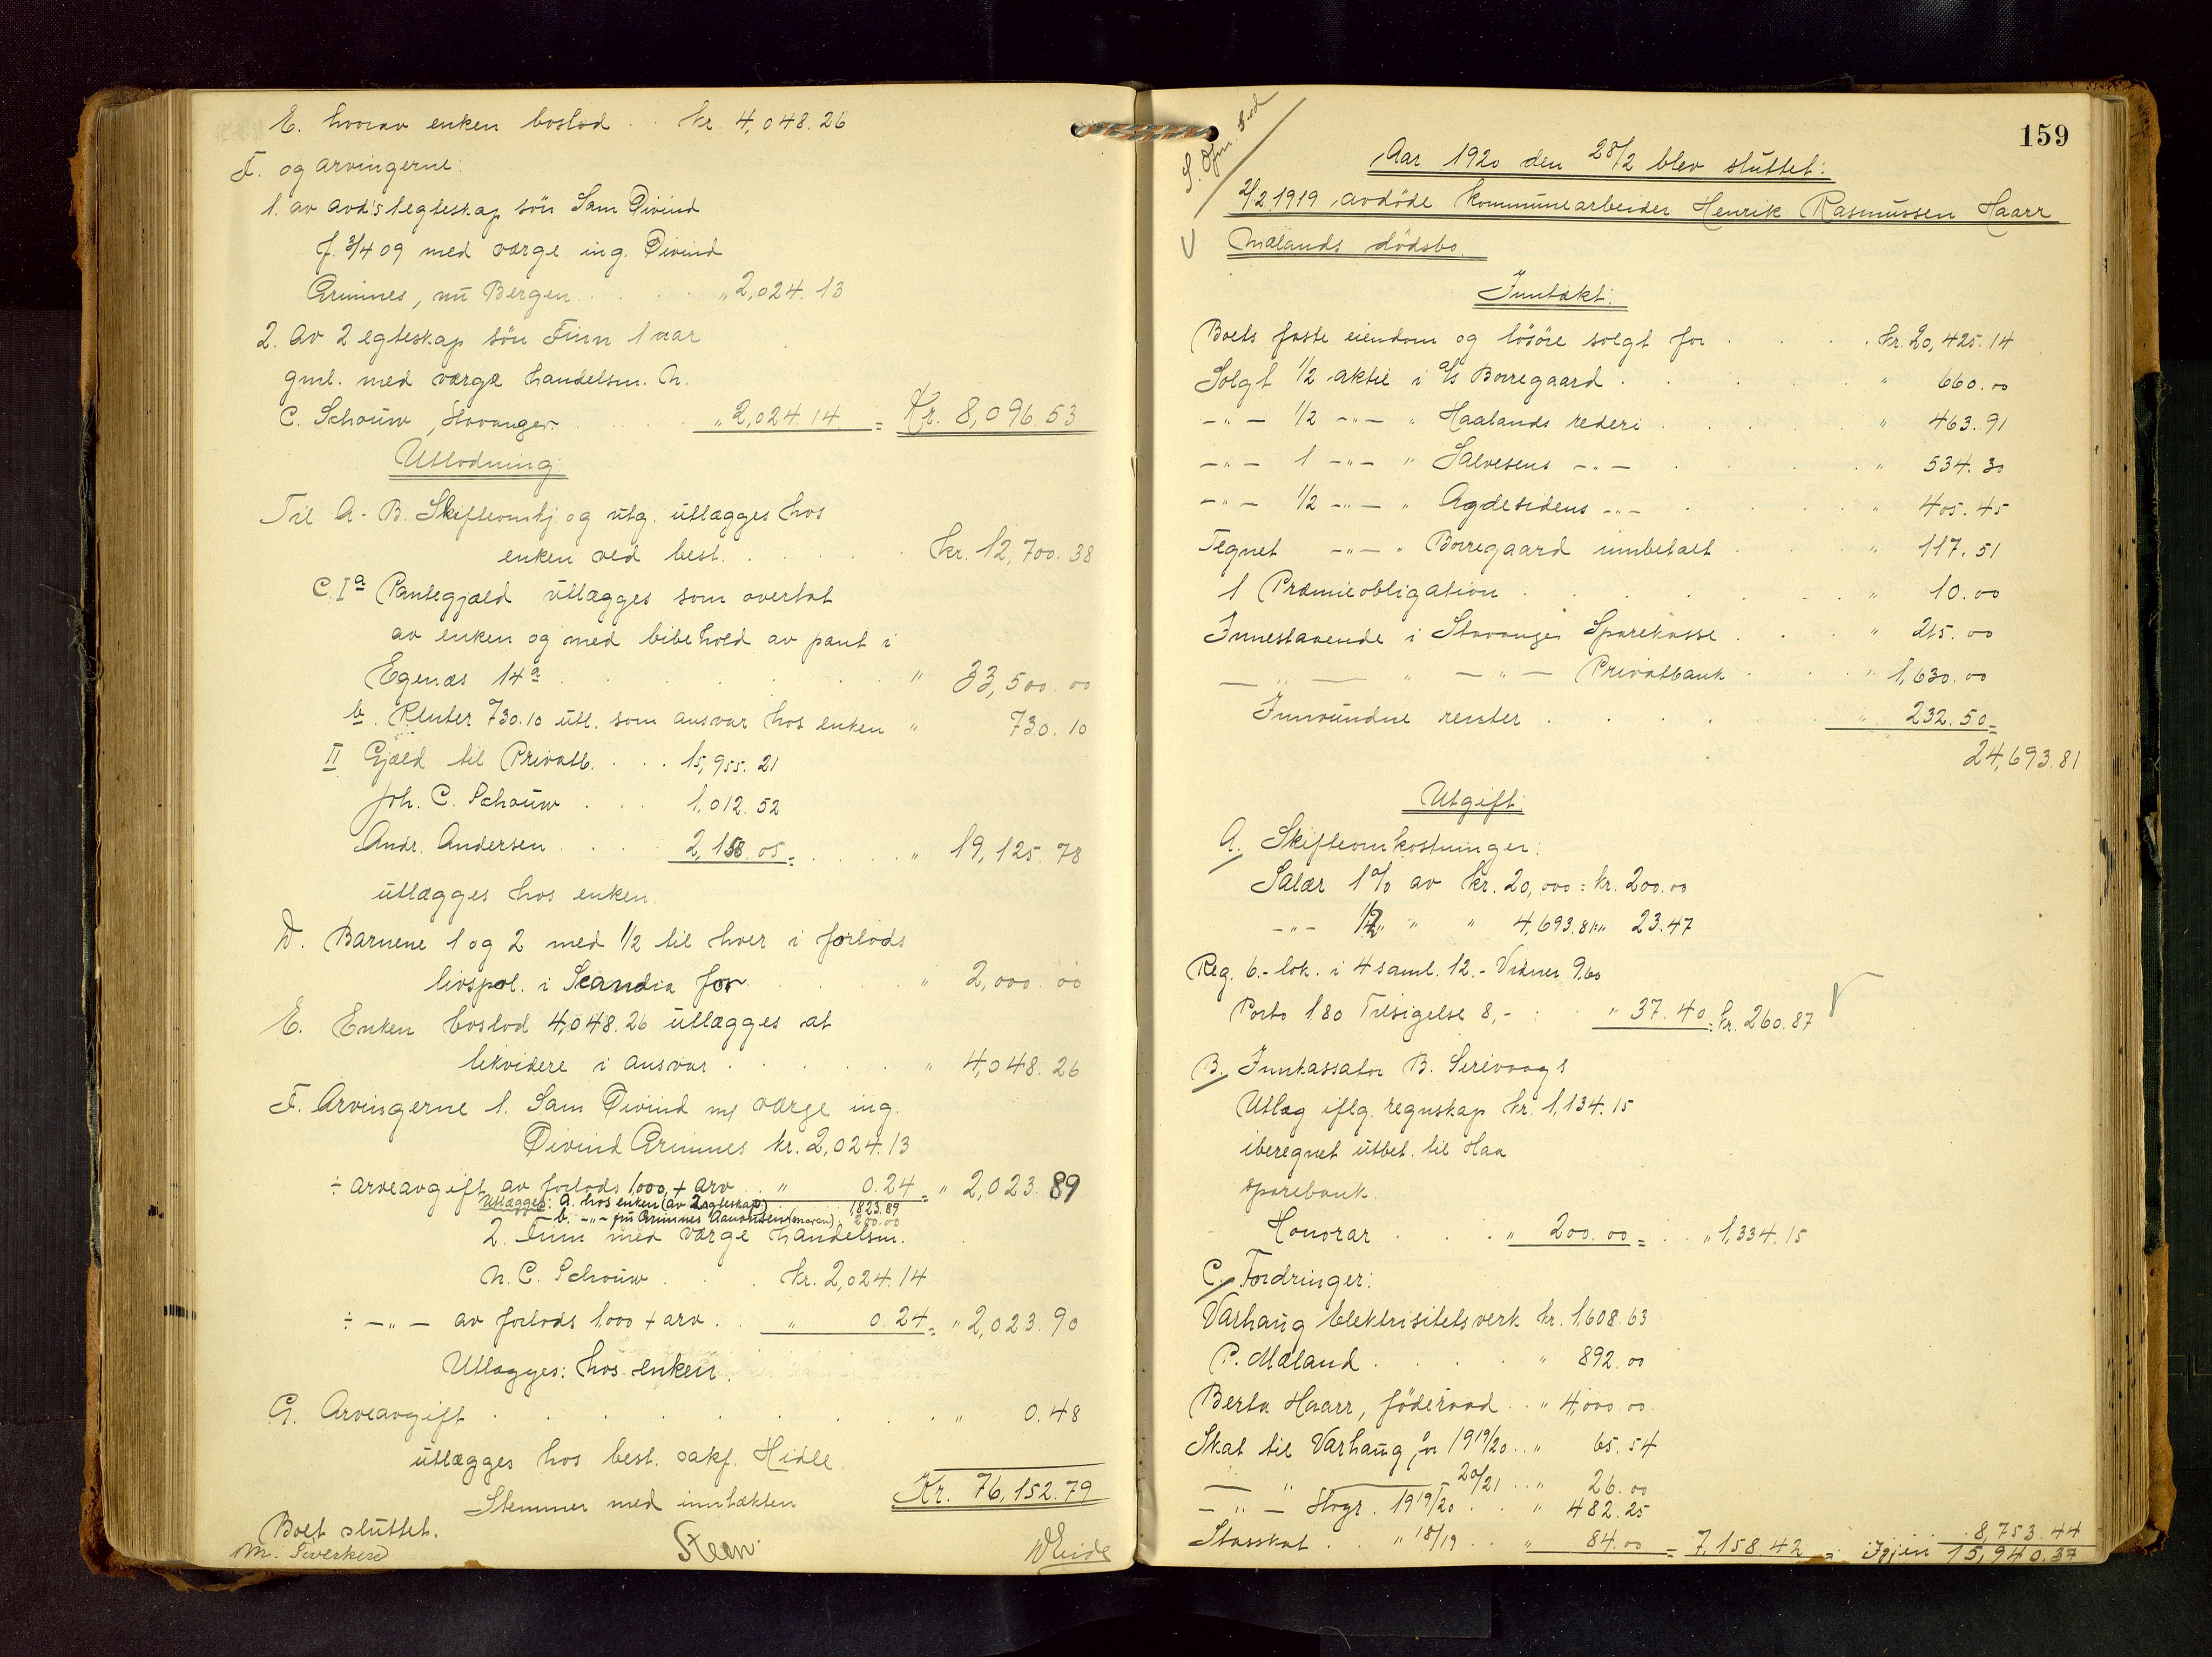 E. hvorav enken boslod . . kr. 4,048.26
F. og arvingerne:
1. av avd's 1 egteskap sön Sam Öivind
f. 3/4 09 med værge ing. Öivind
Grimnes, nu Bergen . . . . „ 2,024.13
2. Av 2 egteskap sön Finn 1 aar
gml. med værge handelsm. N.
C. Schouw, Stavanger. . . . „ 2,024.14 = Kr. 8,096.53
Utlodning
Til A - B. Skifteomkj. og utg. utlægges hos
enken ved best. . . . . kr. 12,700.38
C. I a Pantegjæld utlægges som overtat
av enken og med bibehold av pant i
Egenæs 14 a . . . . . „ 33,500.00
b. Renter 730.10 utl. som ansvar hos enken „ 730.10
II Gjæld til Privatb. . . . 15,955.21
Joh. C. Schouw . . . 1,012.52
Andr. Andersen . . . 2,158.05 = . . . „ 19,125.78
utlægges hos enken.
D. Barnene 1 og 2 med 1/2 til hver i forlods
livspol. i Scandia for . . . . „ 2,000.00
E. Enken boslod 4,048.26 utlægges at
likvidere i ansvar . . . . . „ 4,048.26
F. Arvingerne 1. Sam Öivind m/ værge ing.
Öivind Grimnes kr. 2,024.13
÷ arveavgift av forlods 1000,+ arv . . „ 0.24 = „ 2,023.89
Utlægges: a. hos enken (av 2 egteskap) 1823.89
b. -„- fru Grimnes (moren) 200.00
2. Finn med værge handelsm.
N. C. Schouw . . . kr. 2,024.14
÷ -„- av forlods 1000 + arv . . „ 0.24 = „ 2,023.90
Utlægges: hos enken.
G. Arveavgift . . . . . . . . „ 0.48
utlægges hos best. sakf. Hidle.
Stemmer med inntækten Kr. 76,152.79
Boet sluttet.
Steen
159
Aar 1920 den 28/2 blev sluttet:
2/2 1919 avdöde kommunearbeider Henrik Rasmussen Haarr
Mælands dödsbo.
Inntækt:
Boets faste eiendom og lösöre solgt for . . . . . kr. 20,425.14
Solgt 1/2 aktie i A/S Borregaard . . . . . „ 660.00
-„- 1/2 -„- „ Haalands rederi . . . . . „ 463.91
-„- 1 -„- „ Salvesens -„- . . . . „ 534.30
-„- 1/2 -„- „ Agdesidens -„- . . . . „ 405.45
Tegnet -„- „ Borregaard innbetalt . . . . „ 117.51
1 Præmieobligation . . . . . . . . „ 10.00
Innestaaende i Stavanger Sparekasse . . . . „ 215.00
-„- „ -„- Privatbank . . . . „ 1,630.00
Innvundne renter . . . . . „ 232.50 =
24,693.81
Utgift:
A. Skifteomkostninger:
Salær 1 % av kr. 20,000 = kr. 200.00
-„- 1/2 „ „ „ 4,693.81 = „ 23.47
Reg. 6.- lok. i 4 saml. 12.- Vidner 9.60
Porto 1.80 Tilsigelse 8,- . . „ 37.40 = kr. 260.87
B. Innkassator B. Sirevaags
Utlæg iflg. regnskap kr. 1,134.15
iberegnet utbet. til Haa
sparebank.
Honorar . . . . „ 200.00 = . . „ 1,334.15
C. Fordringer:
Varhaug Elektrisitetsverk kr. 1,608.63
P. Mæland . . . . „ 892.00
Berta Haarr, föderaad . . „ 4,000.00
Skat til Varhaug for 1919/20 . . „ 65.54
-„- 20/21 . . „ 26.00
-„- Stvgr. 1919/20 . . „ 482.25
Statsskat . . „ 18/19 . . „ 84.00 = 7,158.42 = 8,753.44
Igjen 15,940.37